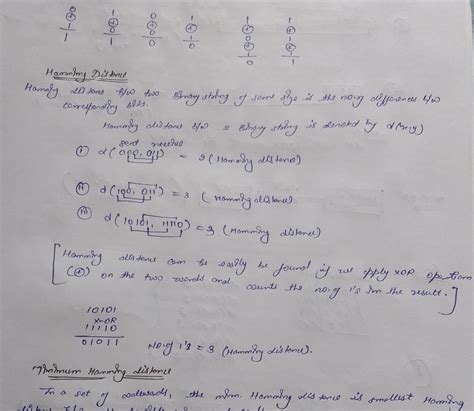 0 1 0 1 1 1
⊕ ⊕ ⊕ ⊕ ⊕ ⊕
1 0 0 1 1 1
1 1 0 0 ⊕ ⊕
Hamming Distance
Hamming distance b/w two Binary string of same size is the no.of differences b/w
corresponding bits.
Hamming distance b/w 2 Binary string is denoted by d(x,y)
sent received
i d(000, 011) = 2 (Hamming distance)
ii d(100, 011) = 3 (Hamming distance)
iii d(10101, 11110) = 3 (Hamming distance)
[Hamming distance can be easily be found if we apply XOR operation
(⊕) on the two words and counts the no.of 1's in the result.]
10101
XOR
11110
01011 No.of 1's = 3 (Hamming distance).
Minimum Hamming distance
In a set of codewords, the min. Hamming distance is smallest Hamming